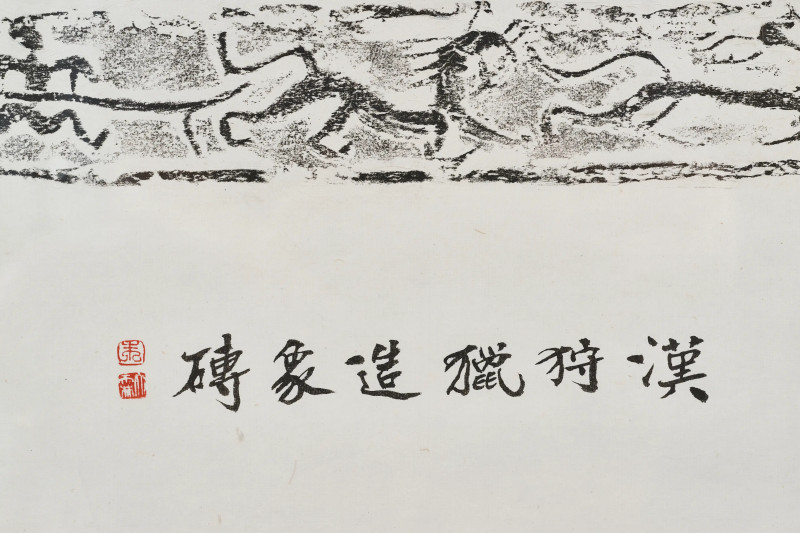 漢狩獵造象磚